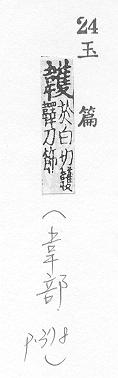 24
玉篇
韄
於白切韄
刀節
(韋部
p.318)